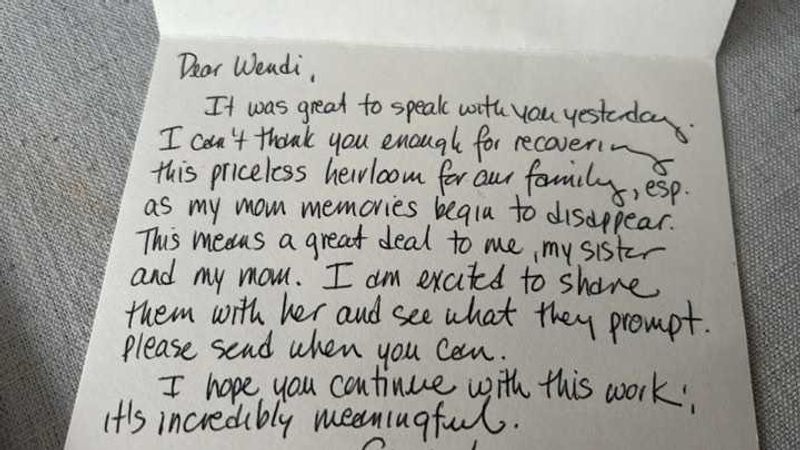 Dear Wendi,
It was great to speak with you yesterday.
I can't thank you enough for recovering
this priceless heirloom for our family, esp.
as my mom memories begin to disappear.
This means a great deal to me, my sister
and my mom. I am excited to share
them with her and see what they prompt.
Please send when you can.
I hope you continue with this work;
it's incredibly meaningful.